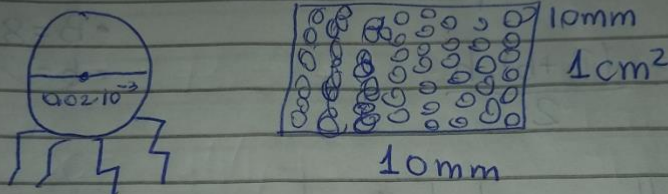 0.02·10⁻³
10mm
1cm²
10mm